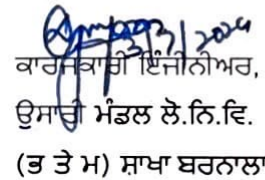 3/3/2024
ਕਾਰਜਕਾਰੀ ਇੰਜੀਨੀਅਰ,
ਉਸਾਰੀ ਮੰਡਲ ਲੋ.ਨਿ.ਵਿ.
(ਭ ਤੇ ਮ) ਸ਼ਾਖਾ ਬਰਨਾਲਾ